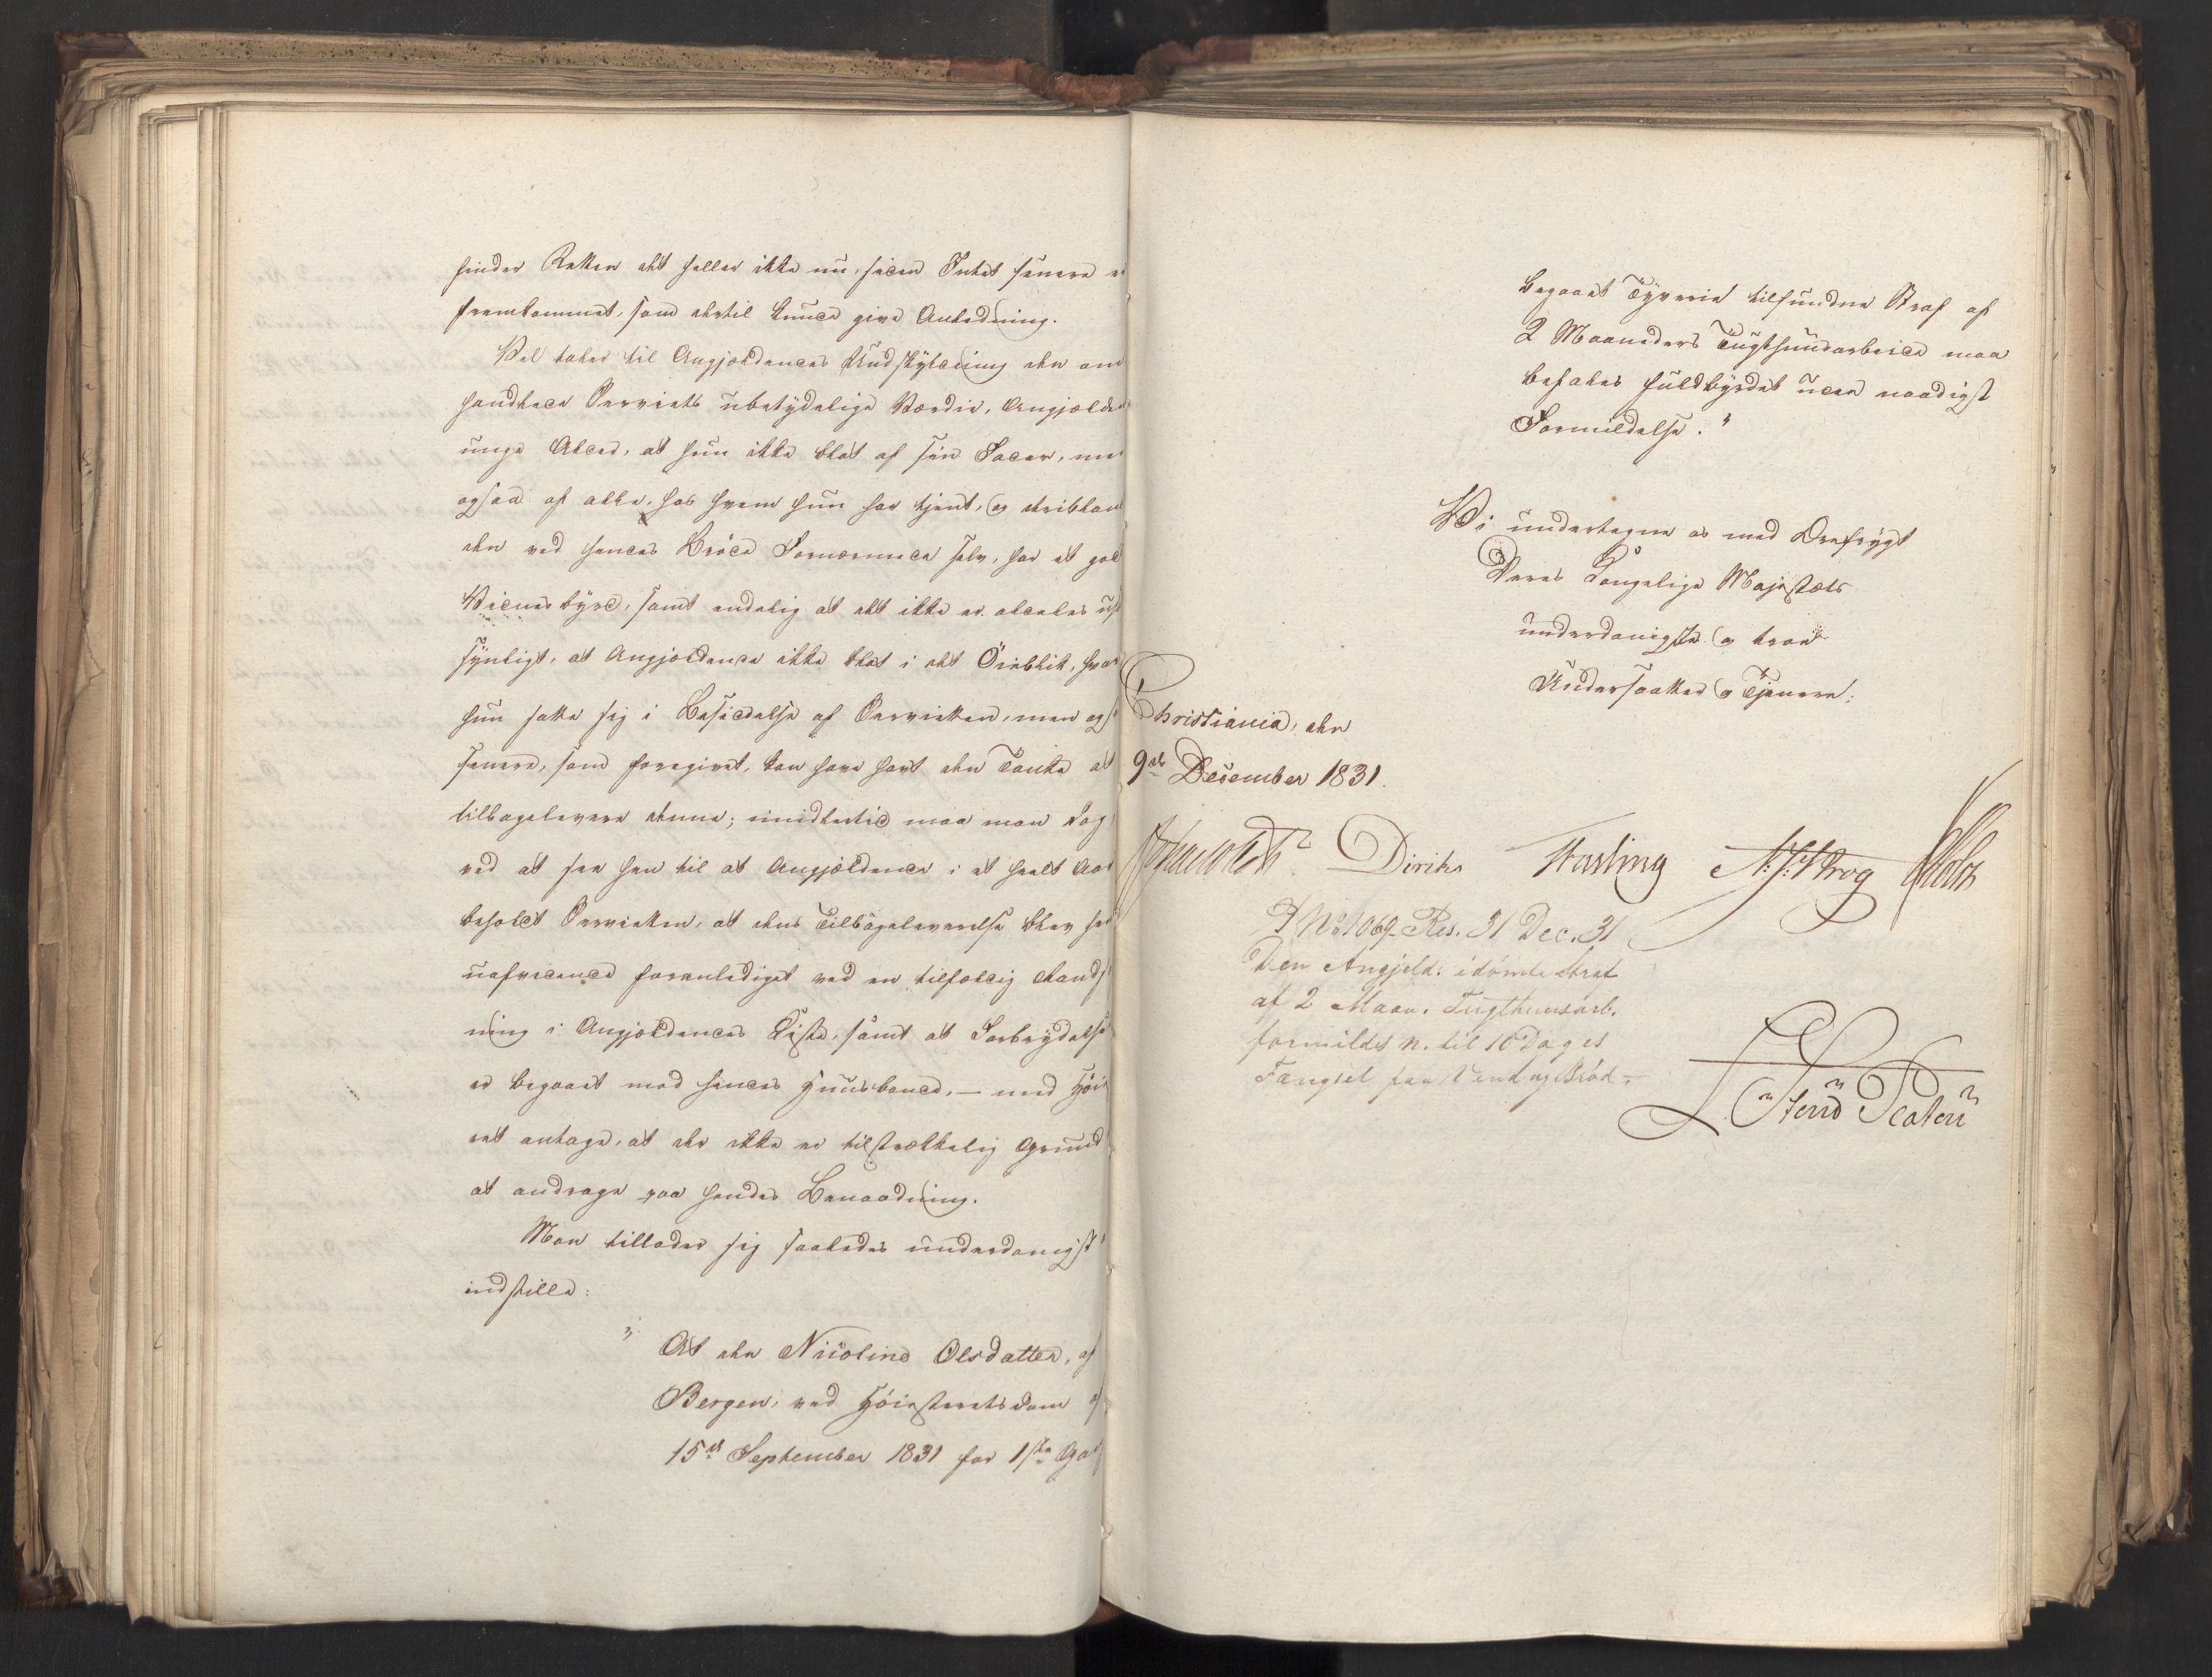 finder Retten det heller ikke nu, siden Intet senere er
fremkommet, som dertil kunde give Anledning.
Vel taler til Angjældendes Undskyldning den om
handlede Perviets ubetydelige Værdie, Angjælden
unge Alder, at hun ikke blot af sin Fader, men
ogsaa af alle, hos hvem hun har tjent, og deriblan
den ved hendes Bröde Fornærmede selv, har et god
Vidnesbyrd, samt endelig at det ikke er aldeles u
synligt, at Angjældende ikke blot i det Öieblik, hvor
hun satte sig i Besiddelse af, men og
senere, som foregivet, kan have havt den Tanke at
tilbagelevere denne; imidlertid maa man dog
ved at see hen til at Angjældende i et heelt Aar
beholdt, at dens Tilbagelevering blev
uafvidende foranlediget ved en tilfældig
ning i Angjældendes Kiste, samt at Forbrydelse
er begaaet mod hendes Huusbond, – med Höie
ret antage, at der ikke er tilstrækkelig Grund
at andrage paa hendes Benaadning.
Man tillader sig saaledes underdanigst
indstille:
" At den Nicoline Olsdatter, af
Bergen, ved Höiesteretsdom af
15d September 1831 for 1ste Gang
begaaet Tyverie tilfundne Straf af
2 Maaneders Tugthuusarbeide maa
befales fuldbyrdet uden naadigst
Formildelse."
Vi undertegne os med Ærefrygt
Deres Kongelige Majestæts
underdanigste og troe
Undersaatter og Tjenere:
Christiania, den
9de December 1831.
Diriks Fasting Krog
No 1069. Res. 31 Dec. 31
Den Angjeld. idömte Straf
af 2 Maan. Tugthuusarb.
formildes n. til 10 Dages
Fængsel paa Vand og Bröd.